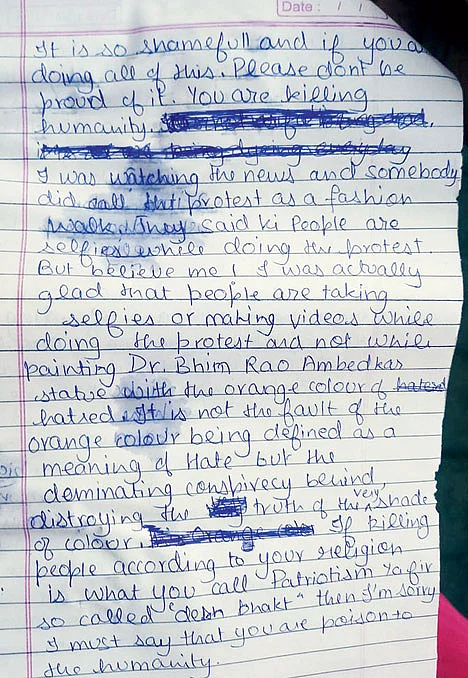 Date : / /
It is so shamefull and if you a
doing all of this. Please dont be
proud of it. You are killing
humanity.
I was watching the news and somebody
did call that protest as a fashion
walk. They said ki People are
selfies while doing the protest.
But believe me! I was actually
glad that people are taking
selfies or making videos while
doing the protest and not while
painting Dr. Bhim Rao Ambedkar
statue with the orange colour of
hatred. It is not the fault of the
orange colour being defined as a
meaning of Hate but the
deminating conspirecy behind,
distroying the truth of the very shade
of colour. If killing
people according to your religion
is what you call Patriotism ya fir
so called "desh bhakt" then I'm sorry
I must say that you are poison to
the humanity.